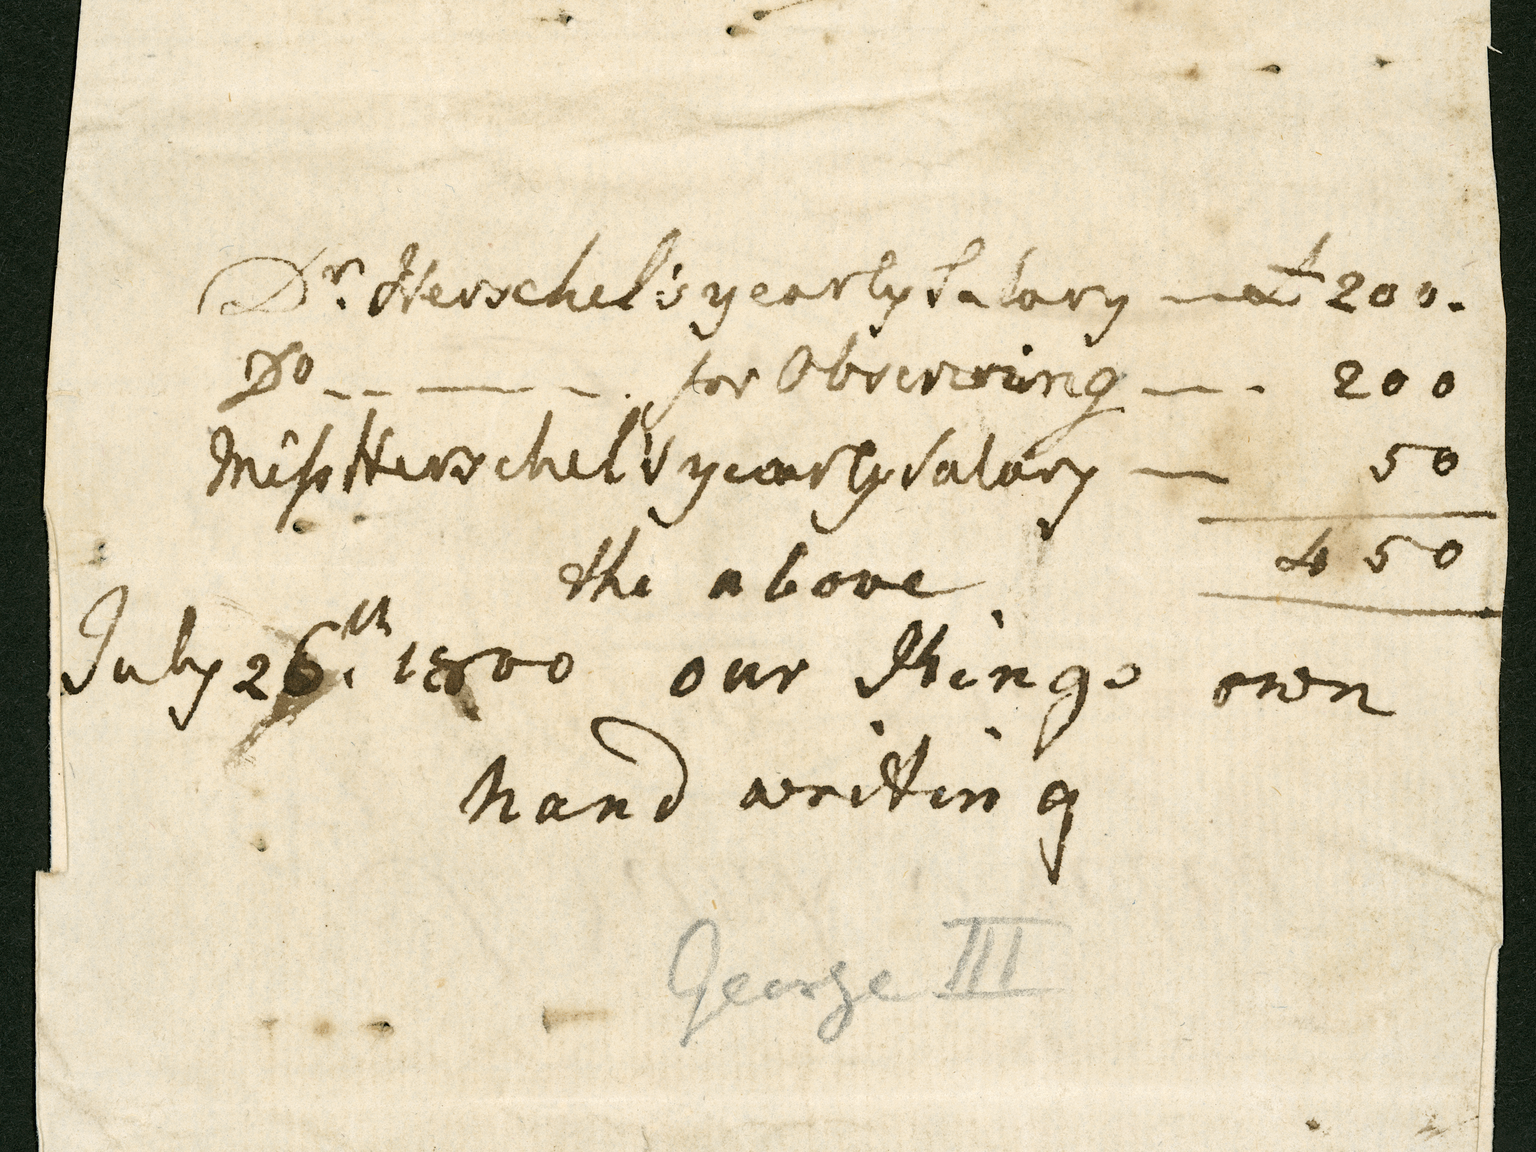 Dr. Herschel's yearly Salary — £ 200.
Do — — — . for Observing — . 200
Miss Herschel's yearly Salary — 50
450
the above
July 26th. 1800 our Kings own
hand writing
George III